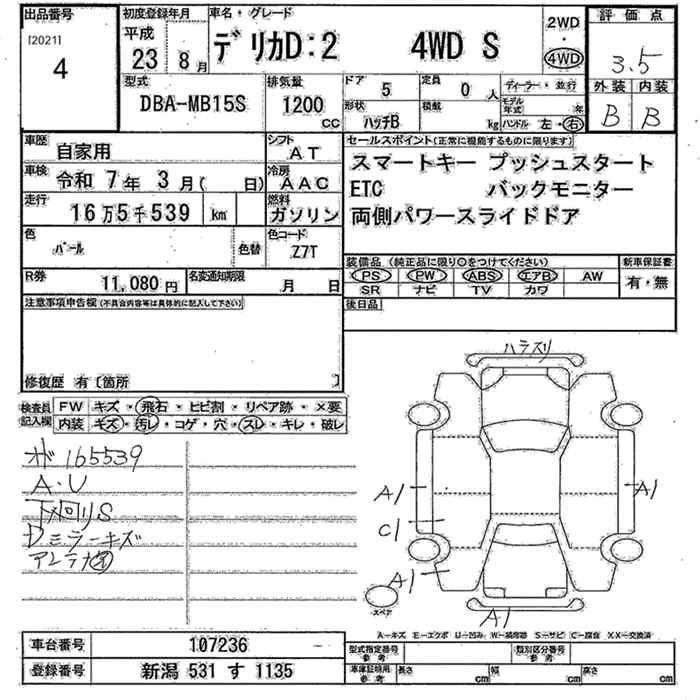 出品番号 初度登録年月 車名・グレード 2WD 評価点
[2021] 平成 デリカD:2 4WD S ・ 3.5
4 23 8月 4WD 外装 内装
型式 排気量 ドア 5 定員 0 人 ディーラー・並行 B B
DBA-MB15S 1200 cc 形状 ハッチB 積載 kg モデル年式 年
ハンドル 左・右
車歴 自家用 シフト AT セールスポイント(正常に機能するものに限ります)
車検 令和 7年 3月( 日) 冷房 AAC スマートキー プッシュスタート
走行 16万5千539 km 燃料 ガソリン ETC バックモニター
両側パワースライドドア
色 パール 色替 色コード Z7T
装備品(純正品に限り○をつけてください) 新車保証書
R券 11,080円 名変通知期限 月 日 PS PW ABS エアB AW 有・無
SR ナビ TV カワ
注意事項申告欄(不具合内容等は具体的に記入して下さい) 後日品
修復歴 有〔箇所
検査員記入欄 FW キズ・飛石・ヒビ割・リペア跡・×要
内装 キズ・汚レ・コゲ・穴・スレ・キレ・破レ
ハラスリ
オド165539
A・U
下メ回リS
Dミラーキズ
アンテナ欠
A1
A1
C1
A1
A1
スペア
A-キズ E-エクボ U-凹み W-補修跡 S-サビ C-腐食 XX-交換済
車台番号 107236 型式指定番号 参考 類別区分番号 参考
登録番号 新潟 531 す 1135 車庫証明用 参考 長さ cm 幅 cm 高さ cm